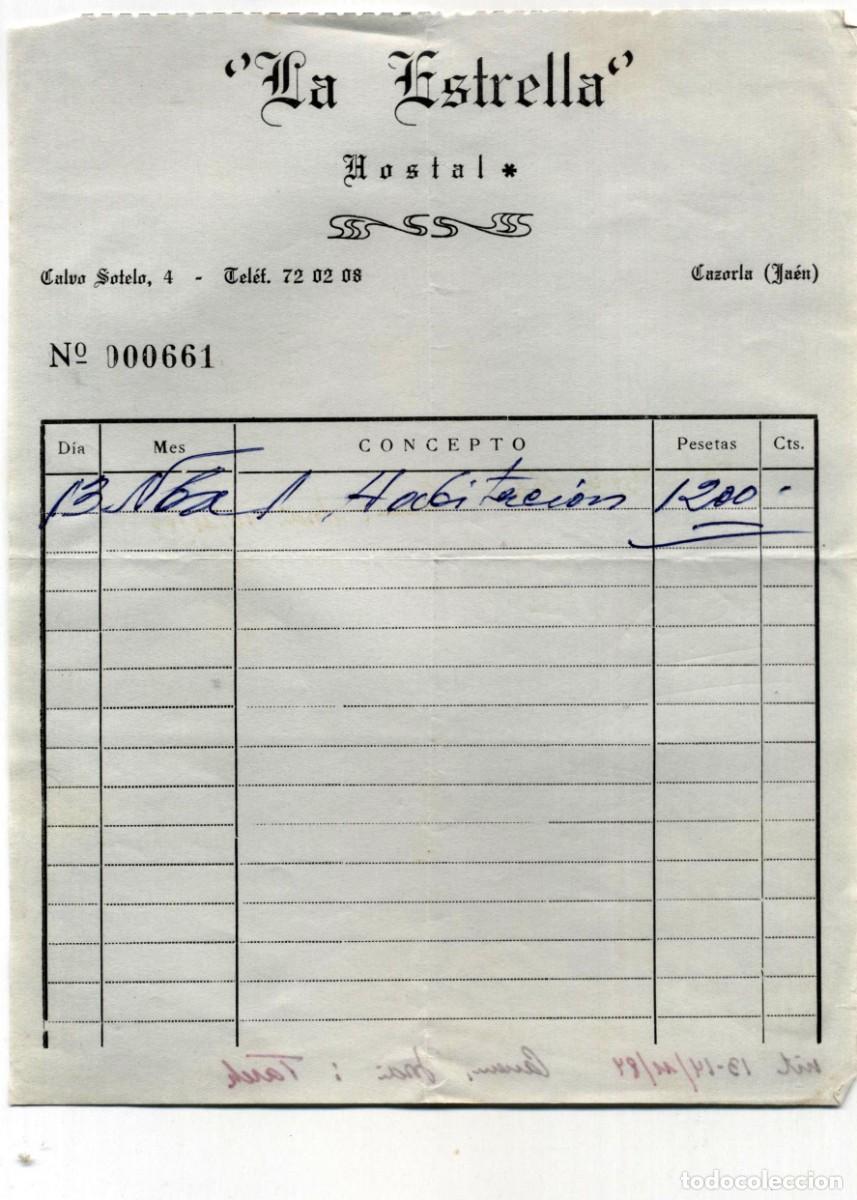 "La Estrella"
Hostal *
Calvo Sotelo, 4 - Teléf. 72 02 08 Cazorla (Jaén)
Nº 000661
Día Mes CONCEPTO Pesetas Cts.
13 1 Habitación 1200 -
nit 13-14/11/84 i
todocoleccion